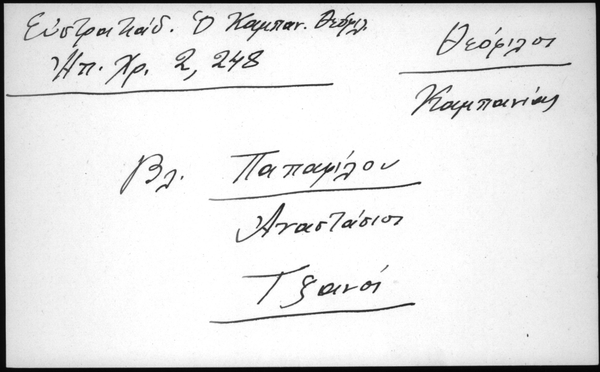 Εὐστρατιάδ. Ὁ Καμπαν. Θεόφιλ.
Ἠπ. Χρ. 2, 248
Θεόφιλος
Καμπανίας
Βλ. Παπαφίλου
Ἀναστάσιος
Τζανός